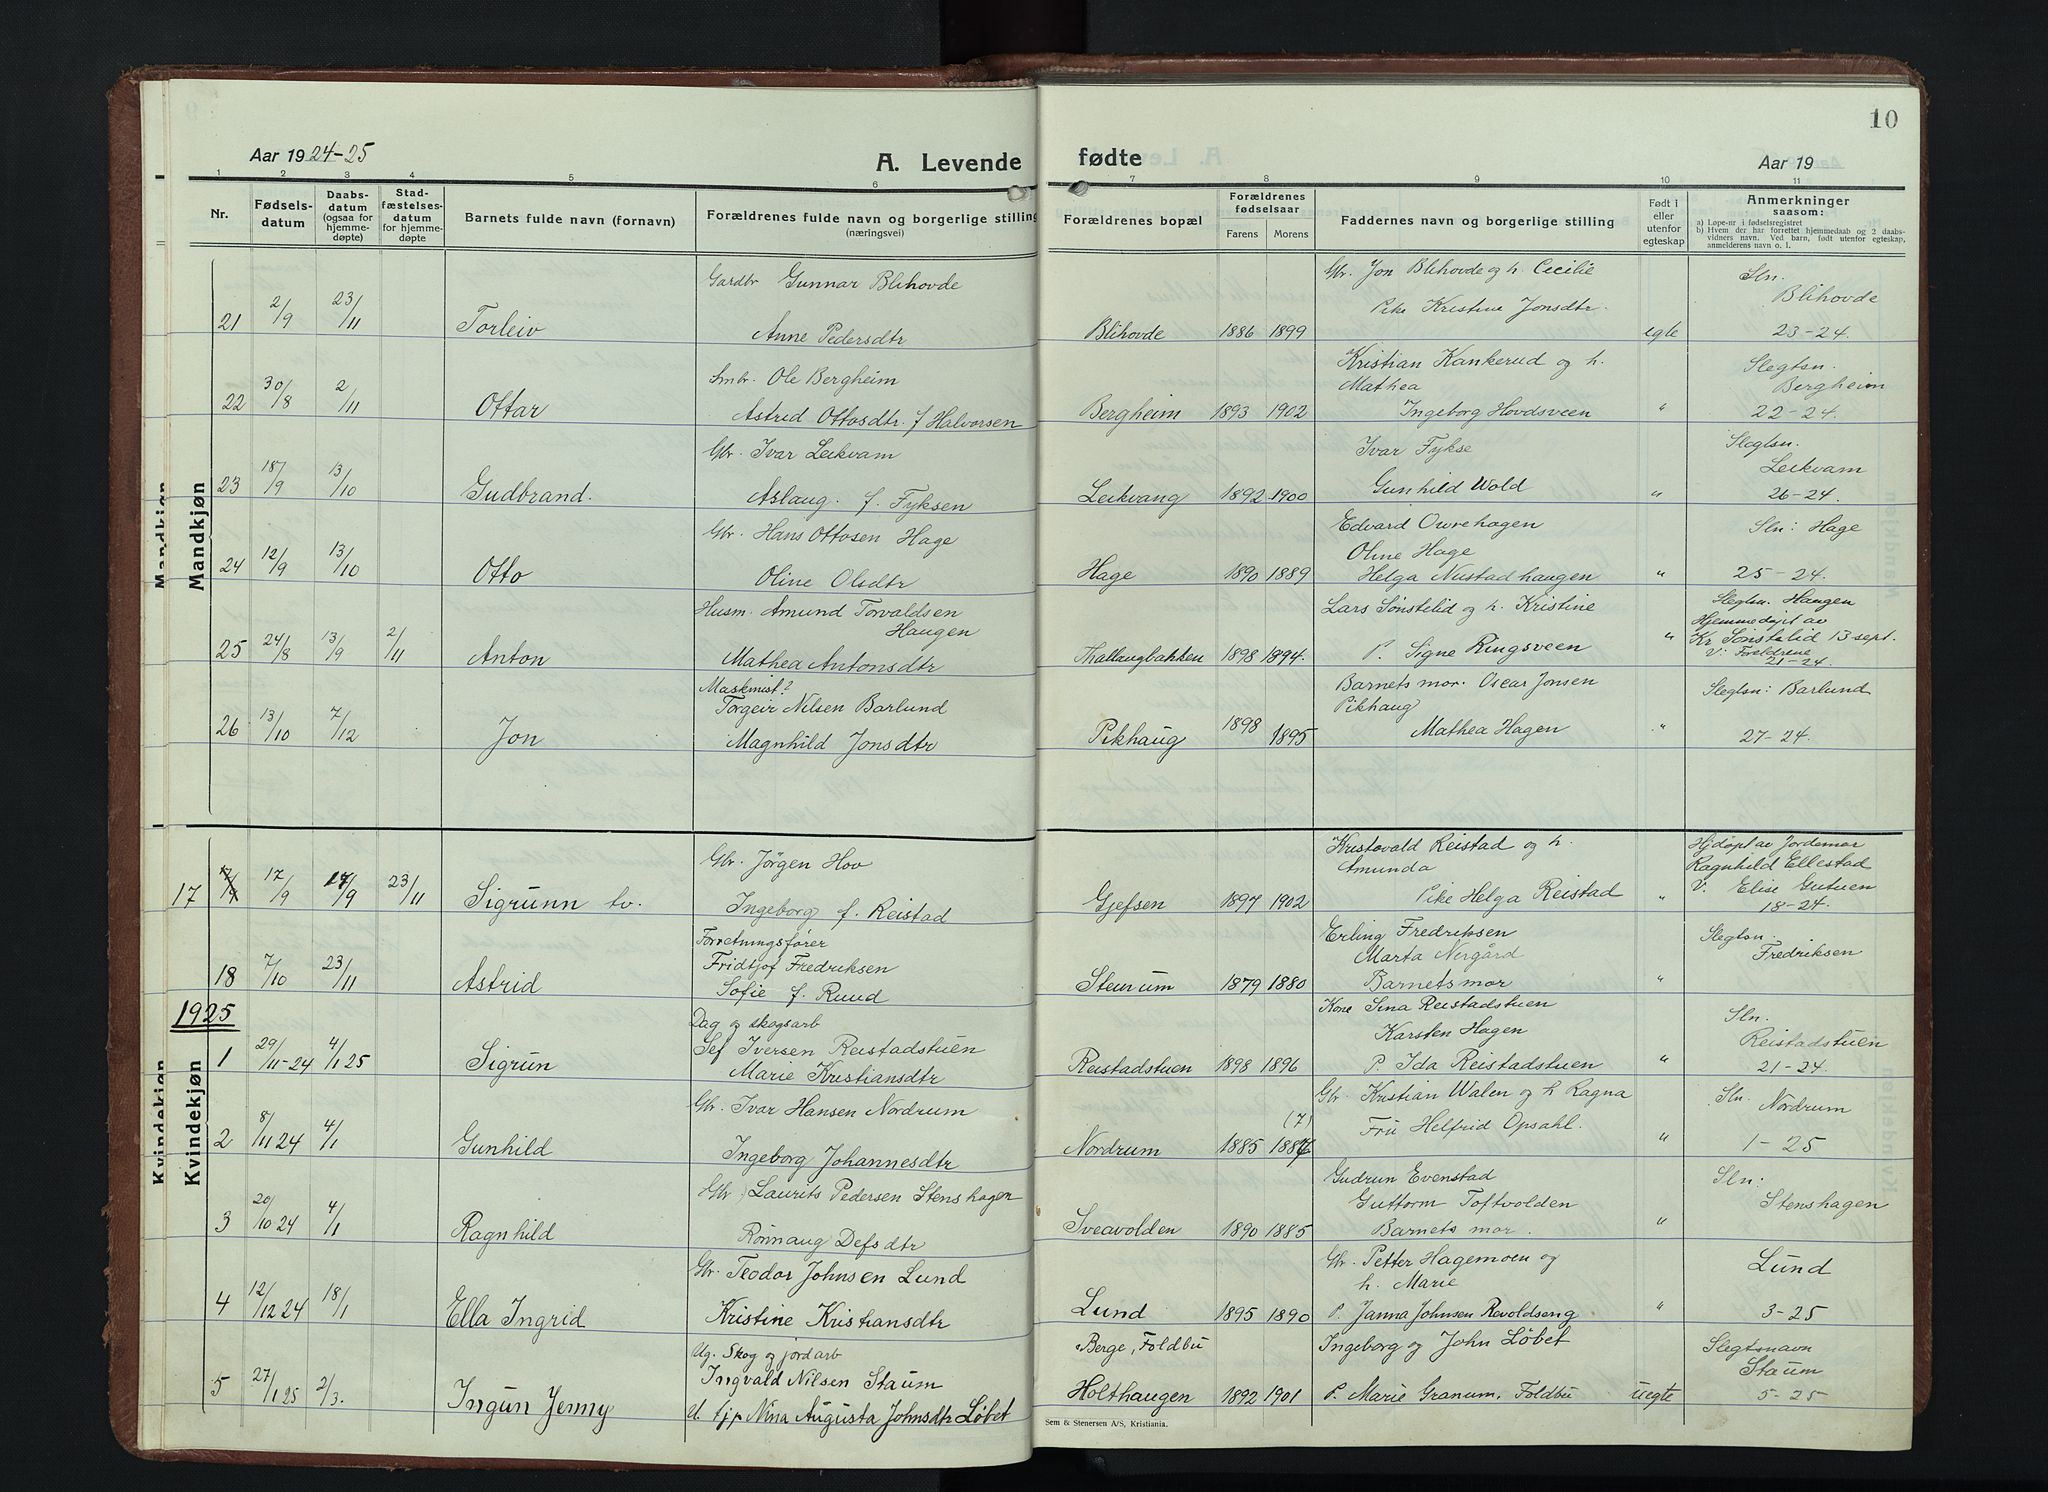 Aar 1924-25
A. Levende
fødte
10
Aar 19
1 2 3 4 5 6 7 8 9 10 11
Nr.
Fødsels-
datum
Daabs-
datum
(ogsaa for
hjemme-
døpte)
Stad-
fæstelses-
datum
for hjemme-
døpte
Barnets fulde navn (fornavn)
Forældrenes fulde navn og borgerlige stilling
(næringsvei)
Forældrenes bopæl
Forældrenes
fødselsaar
Farens Morens
Faddernes navn og borgerlige stilling
Født i
eller
utenfor
egteskap
Anmerkninger
saasom:
a) Løpe-nr i fødselsregistret
b) Hvem der har forrettet hjemmedaab og 2 daabs-
vidners navn. Ved barn, født utenfor egteskap,
anmelderens navn o. l.
Mandkjøn
Mandkjøn
Gardbr Gunnar Blihovde
21 2/9 23/11 Torleiv
Anne Pedersdtr
Blihovde 1886 1899
Gbr. Jon Blihovde og h. Cecilie
Pike Kristine Jonsdtr.
egte
Sln.
Blihovde
23-24.
Smbr. Ole Bergheim
22 30/8 2/11 Ottar
Astrid Ottosdtr. f Halvorsen
Bergheim 1893 1902
Kristian Kankerud og h.
Mathea
Ingeborg Hovdsveen
"
Slegtsn.
Bergheim
22-24.
Gbr. Ivar Leikvam
23 18/9 13/10 Gudbrand.
Aslaug. f. Fyksen
Leikvang 1892 1900
Ivar Fykse
Gunhild Wold
"
Slegtsn.
Leikvam
26-24.
Gbr. Hans Ottosen Hage
24 12/9 13/10 Otto
Oline Olsdtr
Hage 1890 1889
Edvard Owrehagen
Oline Hage
Helga Nustadhaugen
"
Sln: Hage
25-24.
Husm. Amund Torvaldsen
Haugen
25 24/8 13/9 2/11 Anton
Mathea Antonsdtr
Thallaugbakken 1898 1894.
Lars Sønstelid og h. Kristine
P. Signe Ringsveen
"
Slegtsn. Haugen
Hjemmedøpt av
Kr Sønstelid 13 sept.
V. Forældrene
21-24.
Maskmist?
Torgeir Nilsen Barlund
26 13/10 7/12 Jon
Magnhild Jonsdtr
Pikhaug 1898 1895
Barnets mor. Oscar Jonsen
Pikhaug
Mathea Hagen
"
Slegtsn: Barlund
27-24.
Kvindekjøn
Kvindekjøn
Gbr. Jörgen Hov
17 17/9 17/9 23/11 Sigrunn tv.
Ingeborg f. Reistad
Gjefsen 1897 1902
Kristovald Reistad og h.
Amunda
Pike Helga Reistad
"
Hjdöpt av Jordemor
Ragnhild Ellestad
V. Elise Gutuen
18-24.
Forretningsfører
Fridtjof Fredriksen
18 7/10 23/11 Astrid
Sofie f. Ruud
Steinum 1879 1880
Erling Fredriksen
Marta Nergård
Barnets mor
"
Slegtsn.
Fredriksen
1925
Dag og skogsarb
Sef Iversen Reistadstuen
1 29/11-24 4/1 25 Sigrun
Marie Kristiansdtr
Reistadstuen 1898 1896
Kone Sina Reistadstuen
Karsten Hagen
P. Ida Reistadstuen
"
Sln.
Reistadstuen
21-24.
Gbr. Ivar Hansen Nordrum
2 8/11 24 4/1 Gunhild
Ingeborg Johannesdtr
Nordrum 1885 1886 (7)
Gbr. Kristian Walen og h Ragna
Fru Helfrid Opsahl.
"
Sln. Nordrum
1-25
Gbr Laurits Pedersen Stenshagen
3 20/10 24 4/1 Ragnhild
Rönnaug Defsdtr
Sveavolden 1890 1885
Gudrun Evenstad
Guttorm Toftvolden
Barnets mor.
"
Sln:
Stenshagen
Gbr. Teodor Johnsen Lund
4 12/12 24 18/1 Ella Ingrid
Kristine Kristiansdtr
Lund 1895 1890
Gbr. Petter Hagemoen og
h. Marie
P. Janna Johnsen Revoldseng
"
Lund
3-25
Ug. Skog og jordarb
Ingvald Nilsen Staum
5 27/1 25 2/3. Ingun Jenny
U. tjp Nina Augusta Johnsdtr Løbet
Berge, Foldbu
Holthaugen 1892 1901
Ingeborg og John Løbet
P. Marie Granum, Foldbu
uegte
Slegtsnavn
Staum
5-25
Sem & Stenersen A/S, Kristiania.